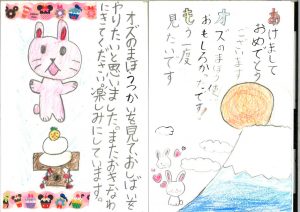 あけまして
おめでとう
ございます
オズのまほう使い
おもしろかったです!
もう一度
見たいです
オズのまほうつかいを見て、おしばいを
やりたいと思いました。またおきなわ
にきてください。楽しみにしています。